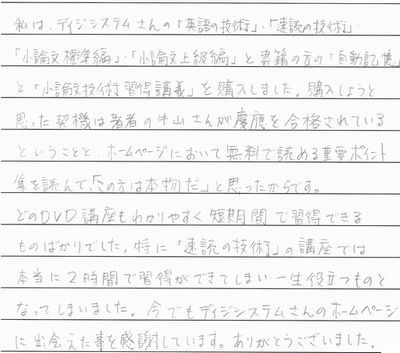 私は、ディジシステムさんの「英語の技術」・「速読の技術」・
「小論文標準編」・「小論文上級編」と書籍の方の「自動記憶」
と「小論文技術習得講義」を購入しました。購入しようと
思った契機は著者の牛山さんが慶應を合格されている
ということと、ホームページにおいて無料で読める重要ポイント
集を読んで「この方は本物だ」と思ったからです。
どのDVD講座もわかりやすく短期間で習得できる
ものばかりでした。特に「速読の技術」の講座では
本当に2時間で習得ができてしまい一生役立つものと
なってしまいました。今でもディジシステムさんのホームページ
に出会えた事を感謝しています。ありがとうございました。